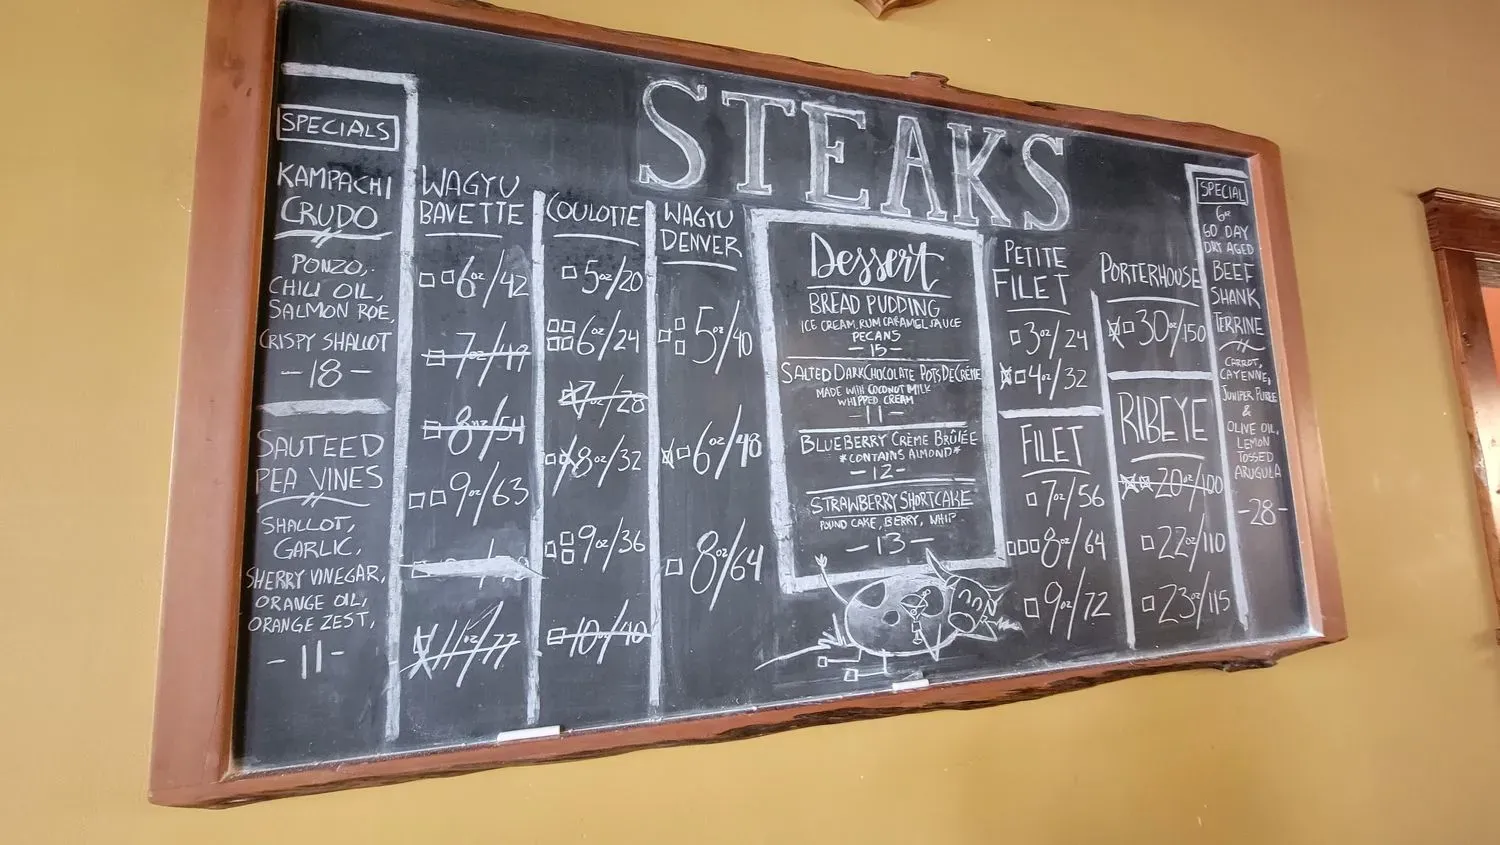 STEAKS
SPECIALS
KAMPACHI
CRUDO
PONZO,
CHILI OIL,
SALMON ROE,
CRISPY SHALLOT
-18-
SAUTEED
PEA VINES
SHALLOT,
GARLIC,
SHERRY VINEGAR,
ORANGE OIL,
ORANGE ZEST,
-11-
WAGYU
BAVETTE
6oz/42
7oz/49
8oz/54
9oz/63
11oz/77
COULOTTE
5oz/20
6oz/24
7oz/28
8oz/32
9oz/36
10oz/40
WAGYU
DENVER
5oz/40
6oz/48
8oz/64
Dessert
BREAD PUDDING
ICE CREAM, RUM CARAMEL SAUCE
PECANS
-15-
SALTED DARK CHOCOLATE POTS DE CRÈME
MADE WITH COCONUT MILK
WHIPPED CREAM
-11-
BLUEBERRY CRÈME BRÛLÉE
*CONTAINS ALMOND*
-12-
STRAWBERRY SHORTCAKE
POUND CAKE, BERRY, WHIP
-13-
PETITE
FILET
3oz/24
4oz/32
FILET
7oz/56
8oz/64
9oz/72
PORTERHOUSE
30oz/150
RIBEYE
20oz/100
22oz/110
23oz/115
SPECIAL
6oz
60 DAY
DRY AGED
BEEF
SHANK
TERRINE
CARROT,
CAYENNE,
JUNIPER PUREE
&
OLIVE OIL,
LEMON
TOSSED
ARUGULA
-28-